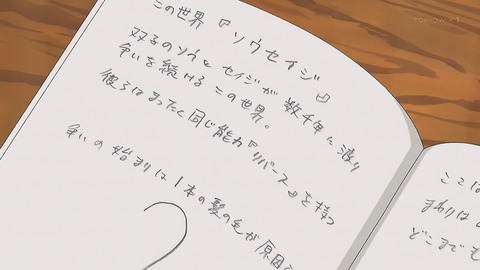 この世界『ソウセイジ』
双子のソウとセイジが数千年に渡り
争いを続けるこの世界。
彼らはまったく同じ能力『リバース』を持つ
争いの始まりは1本の髪の毛が原因
ここは
まわりは
どこまでも
TOKYO MX 1